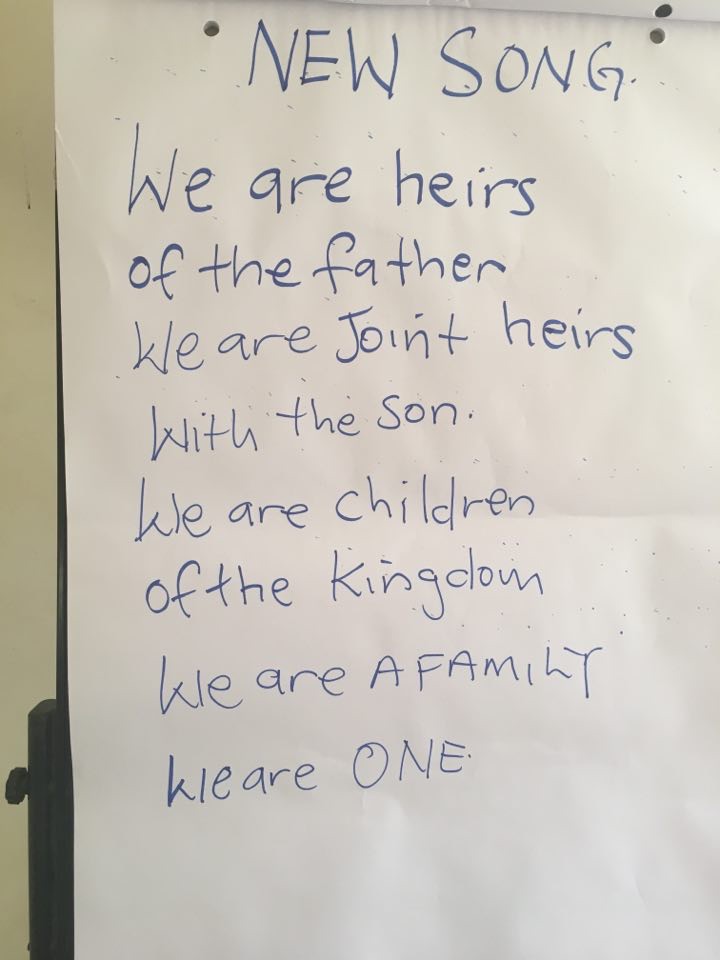 NEW SONG.
We are heirs
of the father
We are Joint heirs
With the Son.
We are children
of the Kingdom
We are A FAMILY
We are ONE.